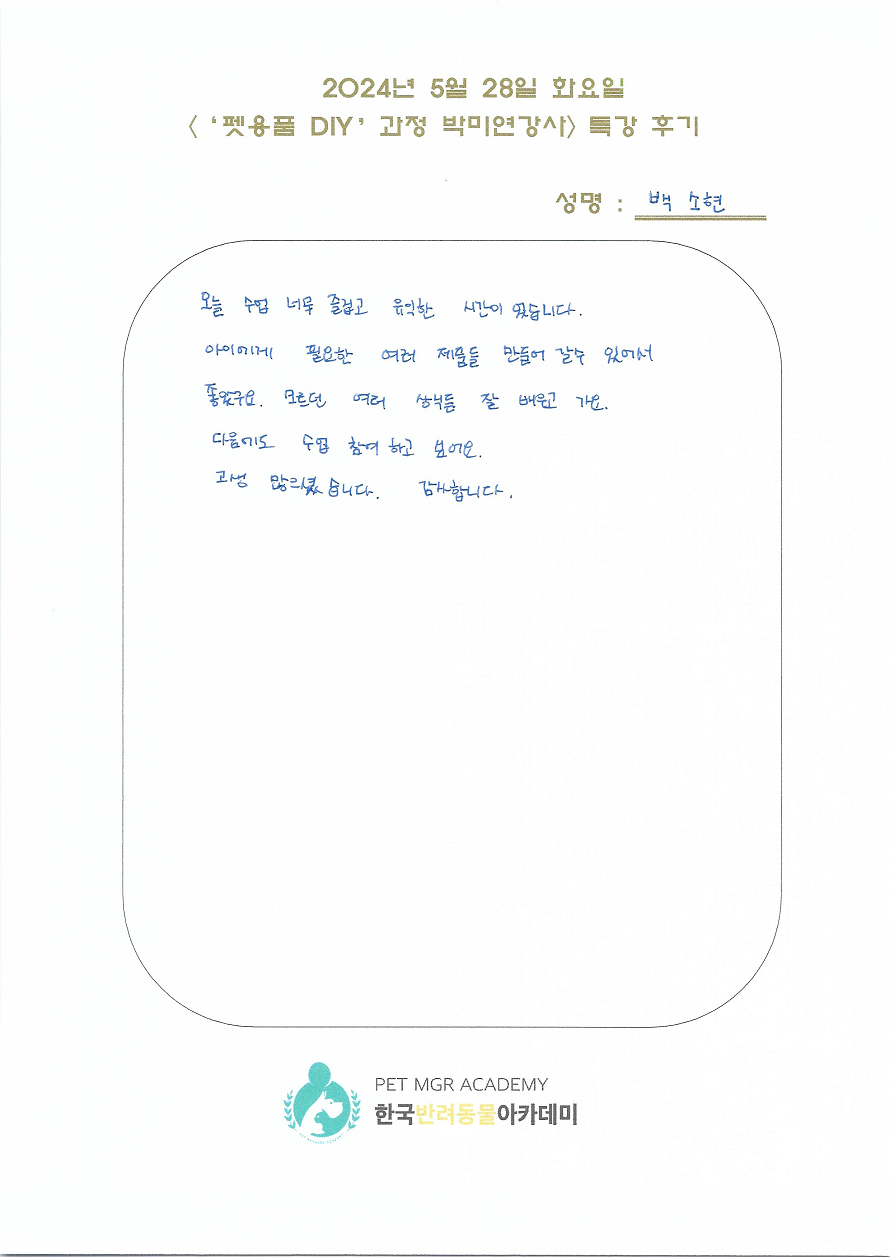 2024년 5월 28일 화요일
< '펫용품 DIY' 과정 박미연강사> 특강 후기
성명 : 백 소현
오늘 수업 너무 즐겁고 유익한 시간이 었습니다.
아이에게 필요한 여러 제품들 만들어 갈수 있어서
좋았구요. 모르던 여러 상식들 잘 배우고 가요.
다음에도 수업 참여 하고 보어요.
고생 많으셨 습니다. 감사합니다.
PET MGR ACADEMY
한국반려동물아카데미